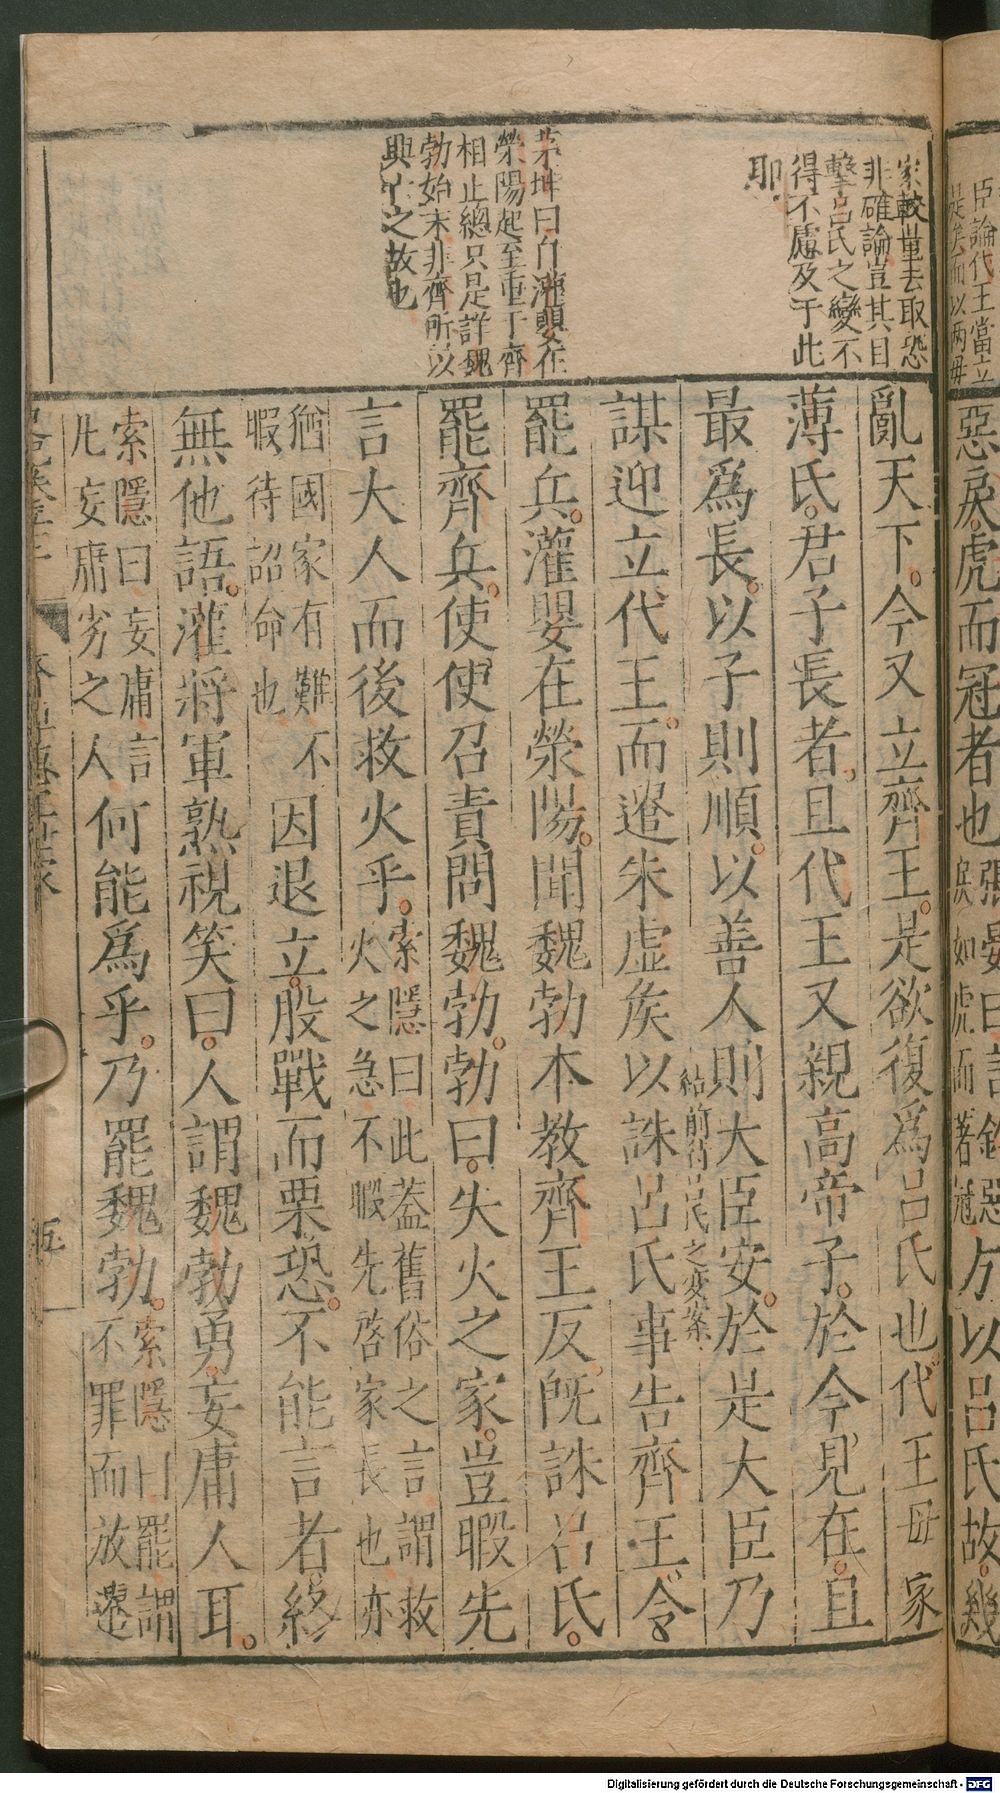 臣論代王當立
是矣而以兩母
家較量去取恐
非確論豈其目
擊呂氏之變不
得不慮及于此
耶
茅坤曰自灌嬰在
滎陽起至重于齊
相止總只是詳魏
勃始末非齊所以
興亡之故也
惡戾虎而冠者也張晏曰言鈞惡
戾如虎而著冠方以呂氏故幾
亂天下今又立齊王是欲復爲呂氏也代王母家
薄氏君子長者且代王又親高帝子於今見在且
最爲長以子則順以善人則大臣安於是大臣乃
結前待呂氏之変案
謀迎立代王而遣朱虛矦以誅呂氏事告齊王令
罷兵灌嬰在滎陽聞魏勃本教齊王反旣誅呂氏
罷齊兵使使召責問魏勃勃曰失火之家豈暇先
言大人而後救火乎索隱曰此蓋舊俗之言謂救
火之急不暇先啓家長也亦
猶國家有難不
暇待詔命也因退立股戰而栗恐不能言者終
無他語灌將軍熟視笑曰人謂魏勃勇妄庸人耳
索隱曰妄庸言
凡妄庸劣之人何能爲乎乃罷魏勃索隱曰罷謂
不罪而放遣
Digitalisierung gefördert durch die Deutsche Forschungsgemeinschaft - DFG